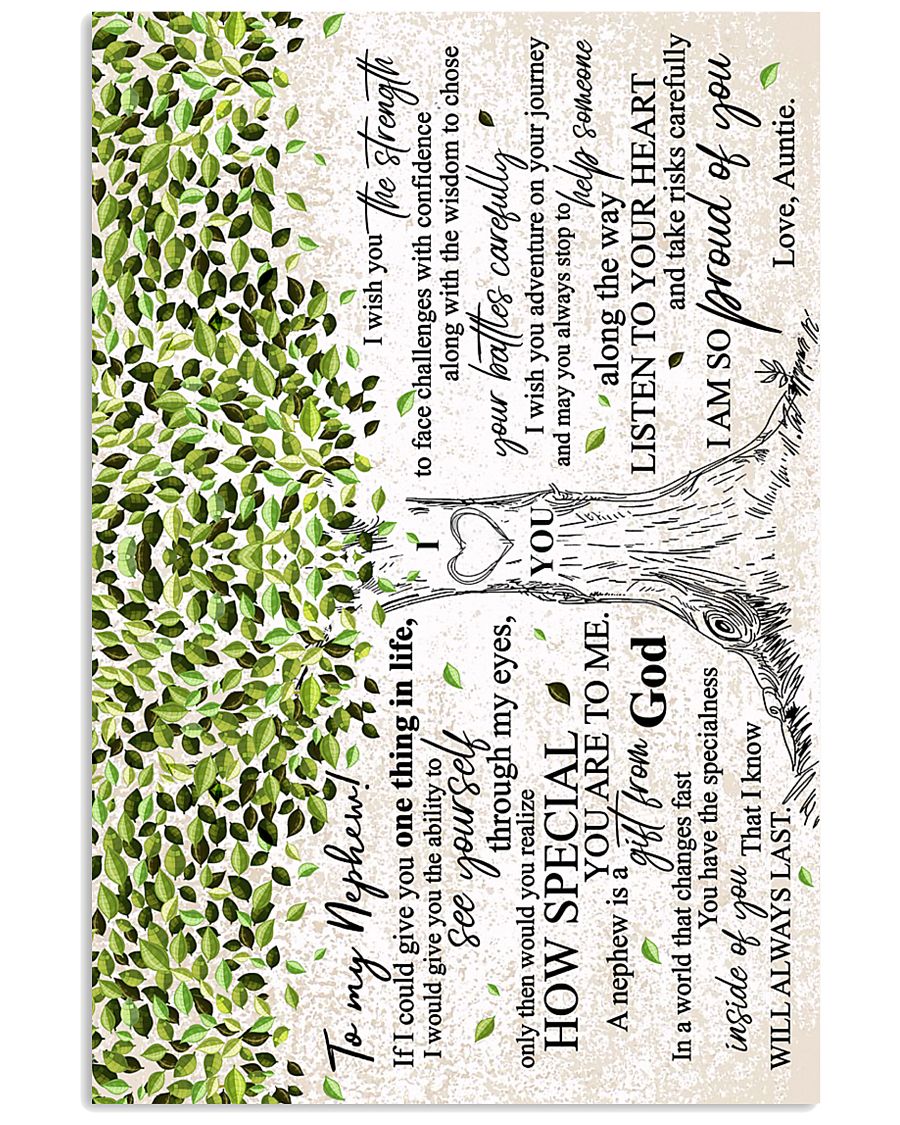 To my Nephew!
If I could give you one thing in life,
I would give you the ability to
see yourself
through my eyes,
only then would you realize
HOW SPECIAL
YOU ARE TO ME.
A nephew is a
gift from God
In a world that changes fast
You have the specialness
inside of you That I know
WILL ALWAYS LAST.
I
YOU
I wish you the strength
to face challenges with confidence
along with the wisdom to chose
your battles carefully
I wish you adventure on your journey
and may you always stop to help someone
along the way
LISTEN TO YOUR HEART
and take risks carefully
I AM SO proud of you
Love, Auntie.